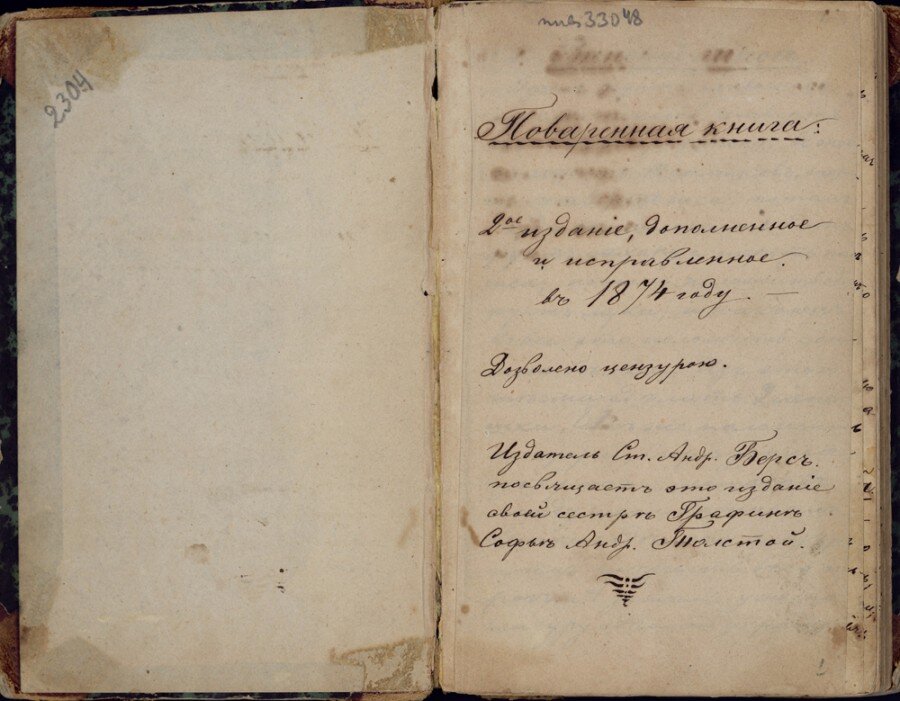 2304
33048
Поваренная книга:
2ое изданіе, дополненное
и исправленное.
въ 1874 году. —
Дозволено цензурою.
Издатель Ст. Андр. Берсъ.
посвящаетъ это изданіе
своей сестрѣ Графинѣ
Софьѣ Андр. Толстой.